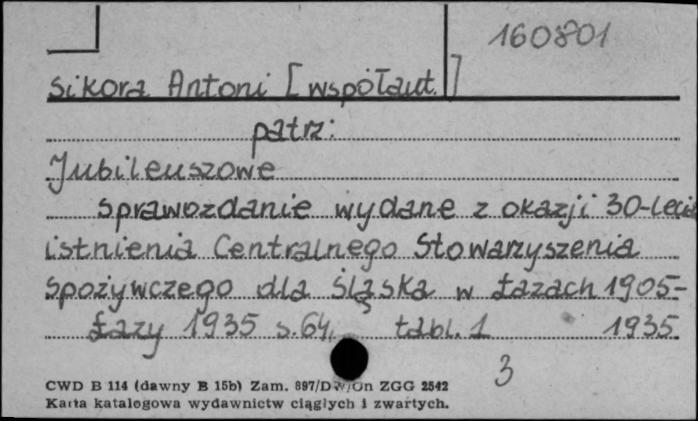 160801
Sikora Antoni [współaut.]
patrz:
Jubileuszowe
sprawozdanie wydane z okazji 30-lecia
istnienia Centralnego Stowarzyszenia
Spożywczego dla Śląska w Łazach 1905-
Łazy 1935 s. 64, tabl. 1 1935
3
CWD B 114 (dawny B 15b) Zam. 897/DW/On ZGG 2542
Karta katalogowa wydawnictw ciągłych i zwartych.